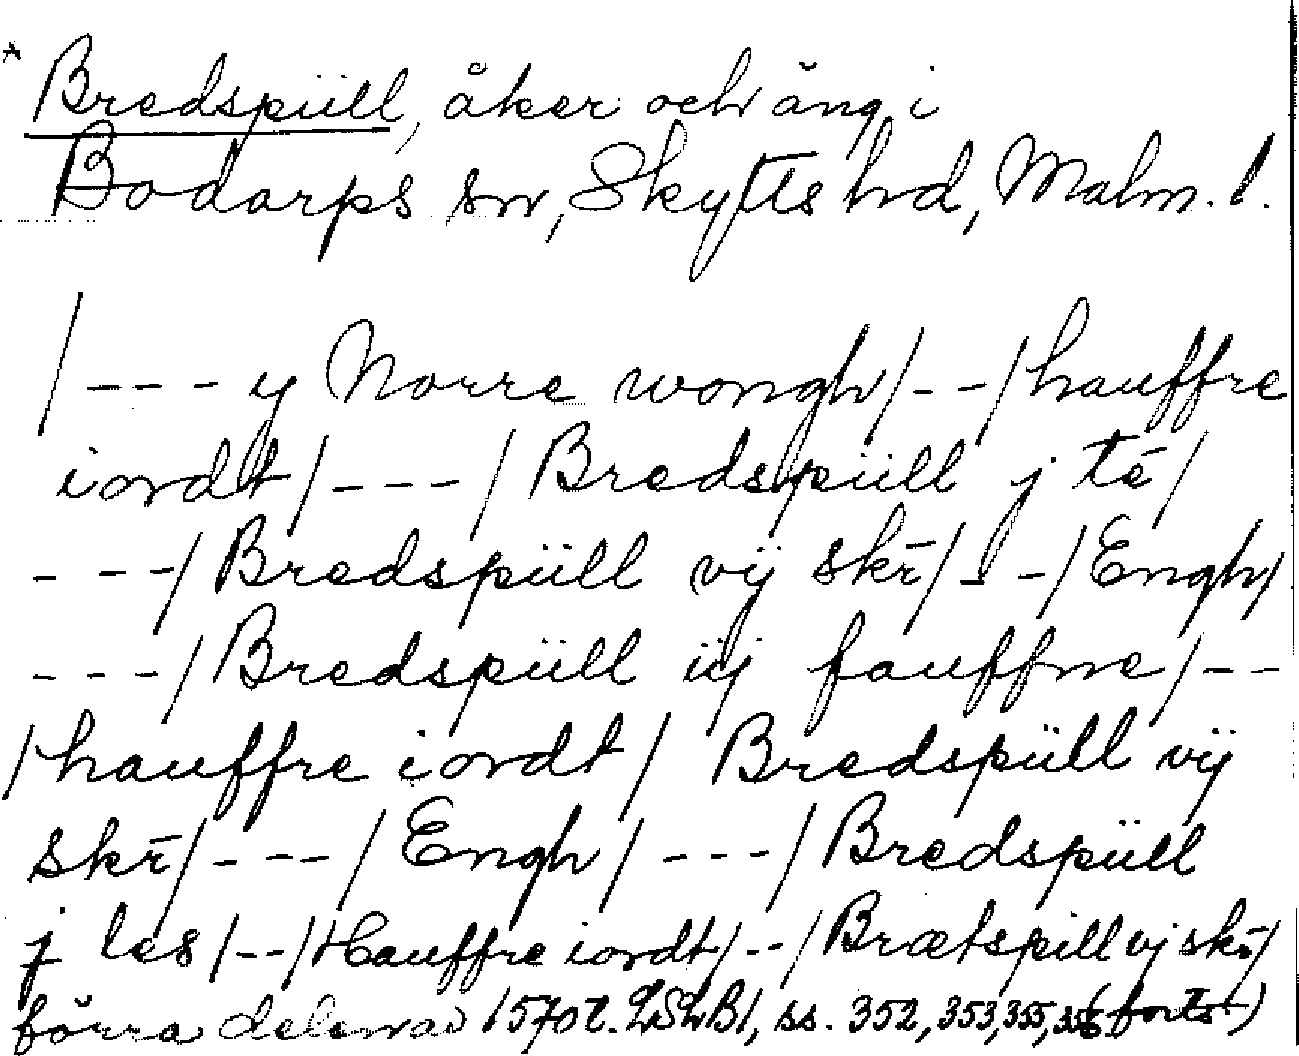 * Bredspüll, åker och äng i
Bodarps sn, Skytts hd, Malm. l.
/--- y Norre wongh/--/hauffre
iordt/---/Bredspüll j tē/
---/Bredspüll vij skr̄/--/Engh/
---/Bredspüll iij fauffne/--
/hauffre iordt/ Bredspüll vij
skr̄/---/Engh/---/Bredspüll
j les/--/Hauffre iordt/--/Brætspill vj skr̄/
förra delen av 1570 t. LSLB1, ss. 352, 353, 355, 356 (forts)